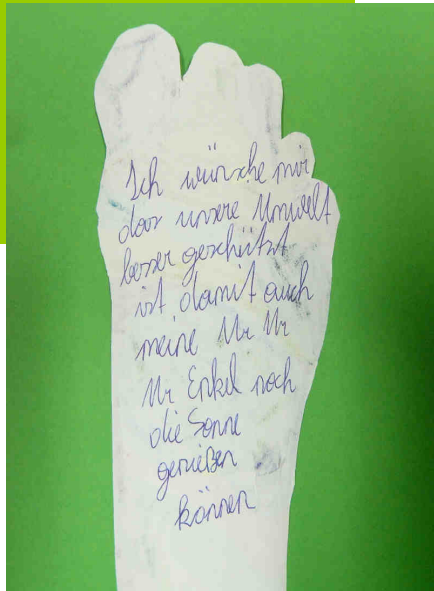 Ich wünsche mir
dass unsere Umwelt
besser geschützt
ist damit auch
meine Ur Ur
Ur Enkel noch
die Sonne
genießen
können